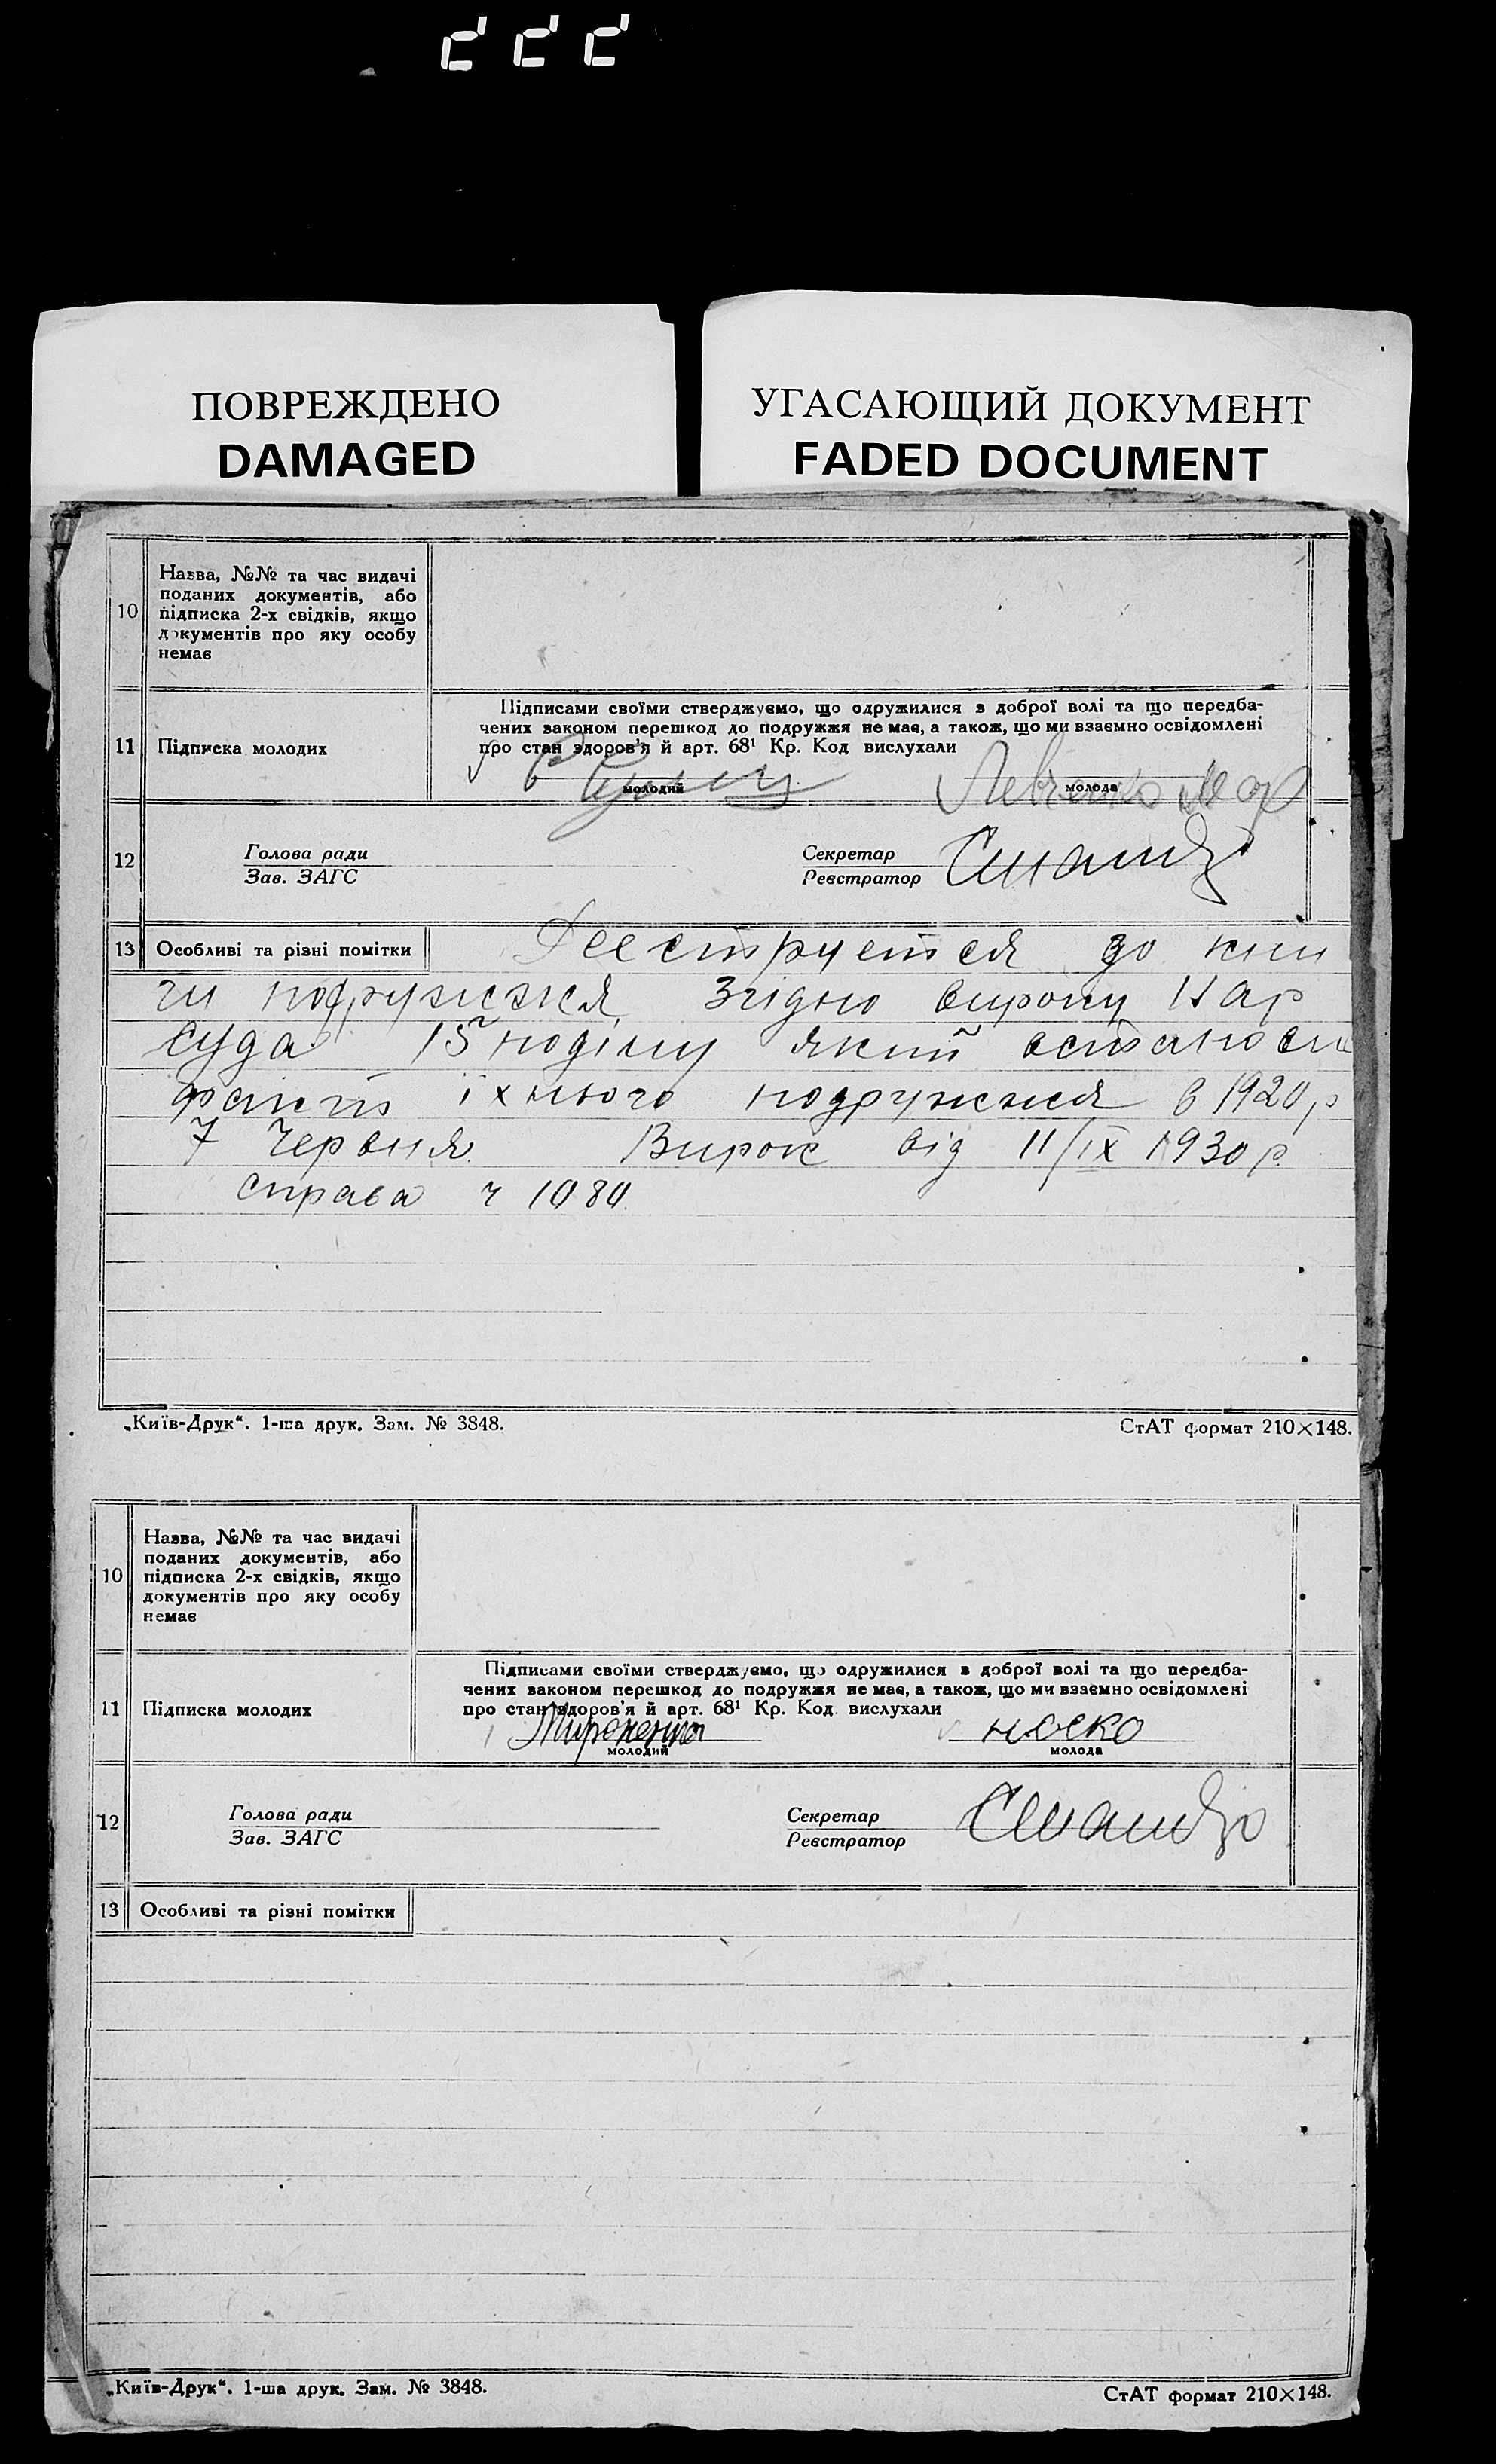 ПОВРЕЖДЕНО
DAMAGED
УГАСАЮЩИЙ ДОКУМЕНТ
FADED DOCUMENT
10
Назва, №№ та час видачі
поданих документів, або
підписка 2-х свідків, якщо
документів про яку особу
немає
11
Підписка молодих
Підписами своїми стверджуємо, що одружилися з доброї волі та що передба-
чених законом перешкод до подружжя не має, а також, що ми взаємно освідомлені
про стан здоров'я й арт. 68¹ Кр. Код вислухали
молодий
Левченко
молода
12
Голова ради
Зав. ЗАГС
Секретар
Реєстратор
13
Особливі та різні помітки
Реєструется до кни
ги подружжя Згідно вироку Нар
суда 15 поділу який встановив
факт їхнього подружжя в 1920 р
7 Червня Вирок від 11/IX 1930 р
справа ч 1080
„Київ-Друк“. 1-ша друк. Зам. № 3848.
СтАТ формат 210×148.
10
Назва, №№ та час видачі
поданих документів, або
підписка 2-х свідків, якщо
документів про яку особу
немає
11
Підписка молодих
Підписами своїми стверджуємо, що одружилися з доброї волі та що передба-
чених законом перешкод до подружжя не має, а також, що ми взаємно освідомлені
про стан здоров'я й арт. 68¹ Кр. Код вислухали
молодий
носко
молода
12
Голова ради
Зав. ЗАГС
Секретар
Реєстратор
13
Особливі та різні помітки
„Київ-Друк“. 1-ша друк. Зам. № 3848.
СтАТ формат 210×148.